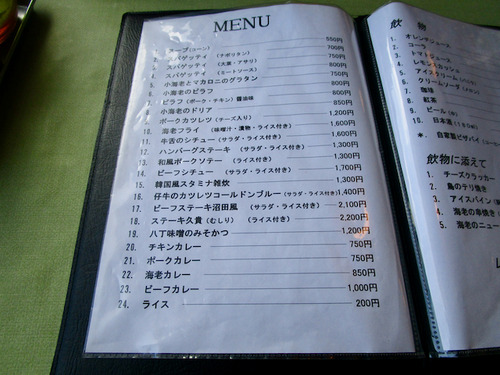 MENU
1. スープ(コーン) 550円
2. スパゲッティ (ナポリタン) 700円
3. スパゲッティ (大葉・アサリ) 750円
4. スパゲッティ (ミートソース) 800円
5. 小海老とマカロニのグラタン 750円
6. 小海老のピラフ 800円
7. ピラフ (ポーク・チキン) 醤油味 800円
8. 小海老のドリア 850円
9. ポークカツレツ (チーズ入り) 1,200円
10. 海老フライ (味噌汁・漬物・ライス付き) 1,600円
11. 牛舌のシチュー (サラダ・ライス付き) 1,600円
12. ハンバーグステーキ (サラダ・ライス付き) 1,300円
13. 和風ポークソテー (ライス付き) 1,300円
14. ビーフシチュー (サラダ・ライス付き) 1,700円
15. 韓国風スタミナ雑炊 1,300円
16. 仔牛のカツレツコールドンブルー (サラダ・ライス付き) 1,400円
17. ビーフステーキ沼田風 (サラダ・ライス付き) 2,100円
18. ステーキ久貴 (むしり) (ライス付き) 2,200円
19. 八丁味噌のみそかつ 1,200円
20. チキンカレー 750円
21. ポークカレー 750円
22. 海老カレー 850円
23. ビーフカレー 1,000円
24. ライス 200円
飲 物
1. オレンジジュース
2. コーラ
3. トマトジュース
4. レモンスカッシュ
5. アイスクリーム
6. クリームソーダ
7. 珈琲
8. 紅茶
9. ビール
10. 日本酒
*. 自家製ピザパイ
飲物に添えて
1. チーズクラッカー
2. 鳥のテリ焼き
3. アイスパイン
4. 海老の串焼き
5. 海老のニュー